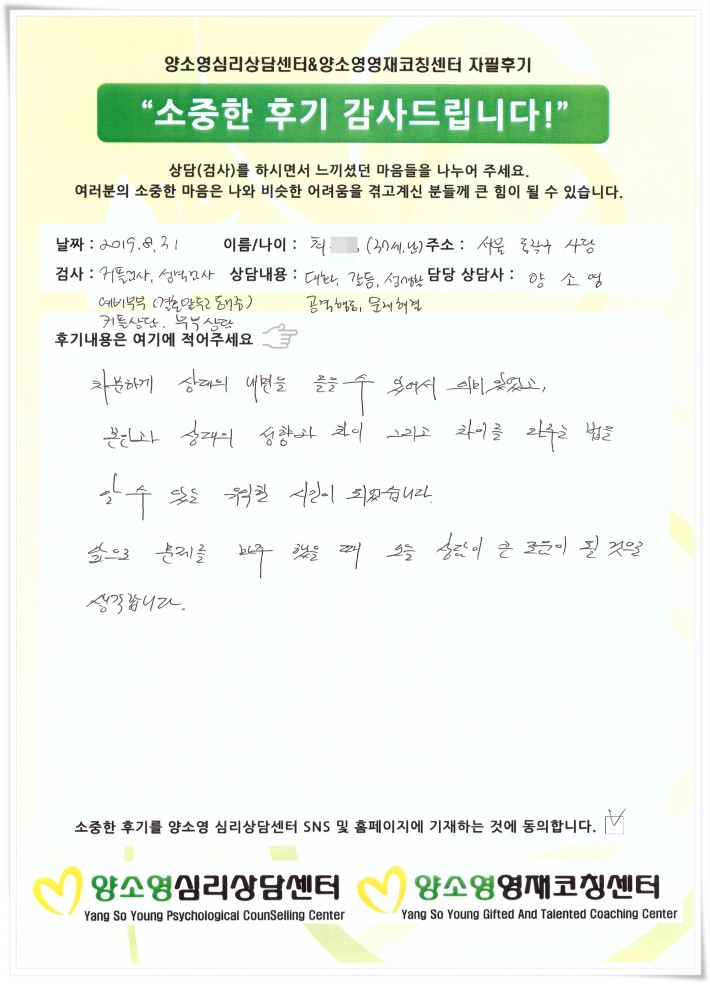 양소영심리상담센터&양소영영재코칭센터 자필후기
“소중한 후기 감사드립니다!”
상담(검사)를 하시면서 느끼셨던 마음들을 나누어 주세요.
여러분의 소중한 마음은 나와 비슷한 어려움을 겪고계신 분들께 큰 힘이 될 수 있습니다.
날짜 : 2019. 8. 31 이름/나이 : 최 (37세, 남) 주소 : 서울 동작구 사당
검사 : 커플검사, 성격검사 상담내용 : 대화, 갈등, 성생활 담당 상담사 : 양 소 영
예비부부 (결혼앞두고 동거중) 공격행동, 문제해결
커플상담. 부부상담
후기내용은 여기에 적어주세요
차분하게 상대의 내면을 들을 수 있어서 의미있었고,
본인과 상대의 성향과 차이 그리고 차이를 다루는 법을
알 수 있는 유익한 시간이 되었습니다.
앞으로 문제를 마주 했을 때 오늘 상담이 큰 도움이 될 것으로
생각합니다.
소중한 후기를 양소영 심리상담센터 SNS 및 홈페이지에 기재하는 것에 동의합니다.
양소영심리상담센터 양소영영재코칭센터
Yang So Young Psychological CounSelling Center Yang So Young Gifted And Talented Coaching Center